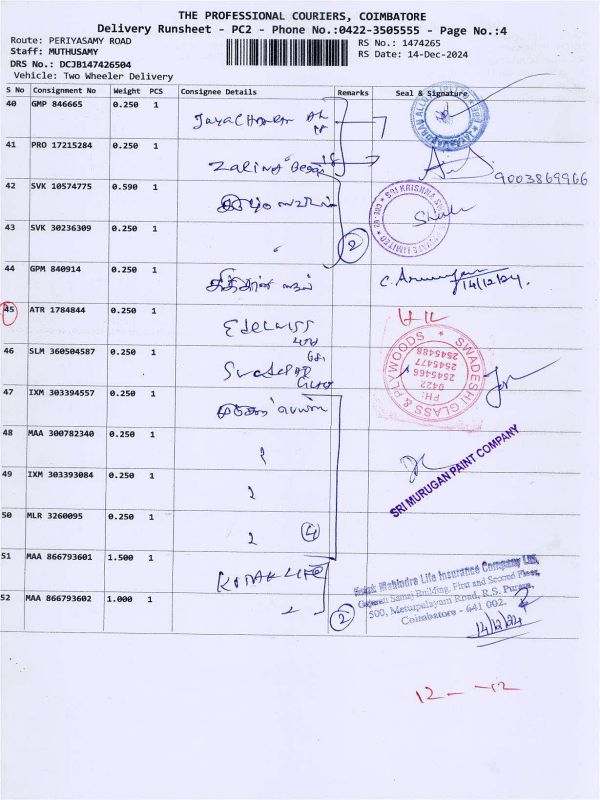 THE PROFESSIONAL COURIERS, COIMBATORE
Delivery Runsheet - PC2 - Phone No.:0422-3505555 - Page No.:4
Route: PERIYASAMY ROAD
Staff: MUTHUSAMY
DRS No.: DCJB147426504
Vehicle: Two Wheeler Delivery
RS No.: 1474265
RS Date: 14-Dec-2024
S No Consignment No Weight PCS Consignee Details Remarks Seal & Signature
40 GMP 846665 0.250 1
41 PRO 17215284 0.250 1
9003869966
42 SVK 10574775 0.590 1
SRI KRISHNA
43 SVK 30236309 0.250 1
2
44 GPM 840914 0.250 1
C. Arumugam
14/12/24.
45 ATR 1784844 0.250 1 Edelwiss
46 SLM 360504587 0.250 1
SWADESHI GLASS & PLYWOODS
PH:
0422
2545466
2545477
2545488
47 IXM 303394557 0.250 1
48 MAA 300782340 0.250 1
SRI MURUGAN PAINT COMPANY
49 IXM 303393084 0.250 1
50 MLR 3260095 0.250 1
4
51 MAA 866793601 1.500 1 KOTAK LIFE
Kotak Mahindra Life Insurance Company Ltd,
Gujarati Samaj Building, First and Second Floor,
500, Mettupalayam Road, R.S. Puram,
Coimbatore - 641 002.
52 MAA 866793602 1.000 1
2
14/12/24
12 - -12